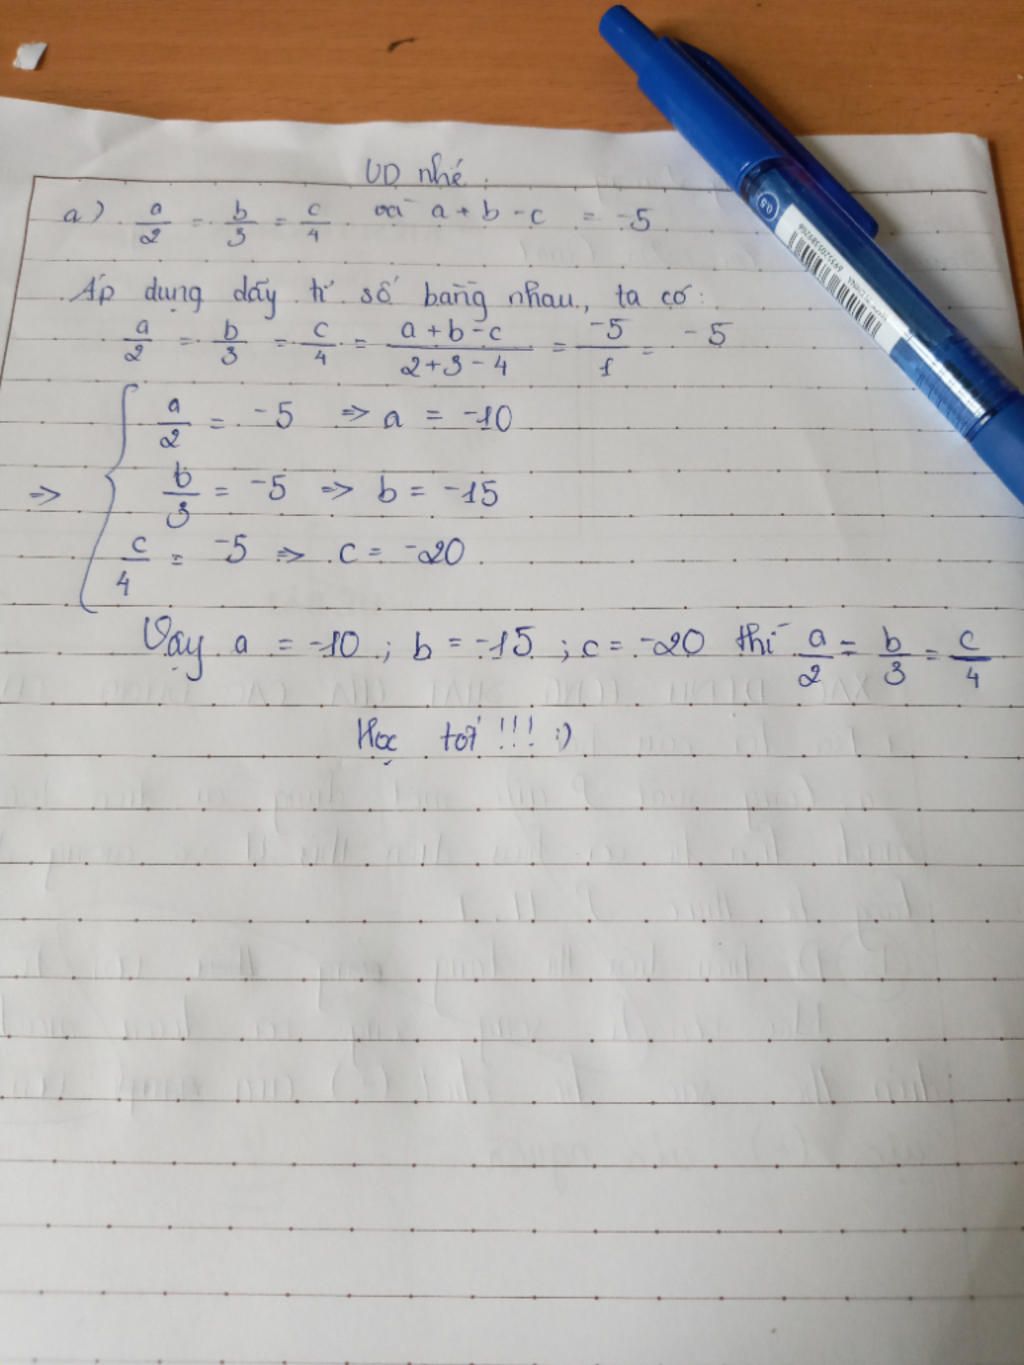 UD nhé.
a) a/2 = b/3 = c/4 và a + b - c = -5
Áp dụng dãy tỉ số bằng nhau, ta có:
a/2 = b/3 = c/4 = (a + b - c)/(2 + 3 - 4) = -5/1 = -5
=> { a/2 = -5 => a = -10
b/3 = -5 => b = -15
c/4 = -5 => c = -20.
Vậy a = -10 ; b = -15 ; c = -20 thì a/2 = b/3 = c/4
Học tốt !!! :)
0.5